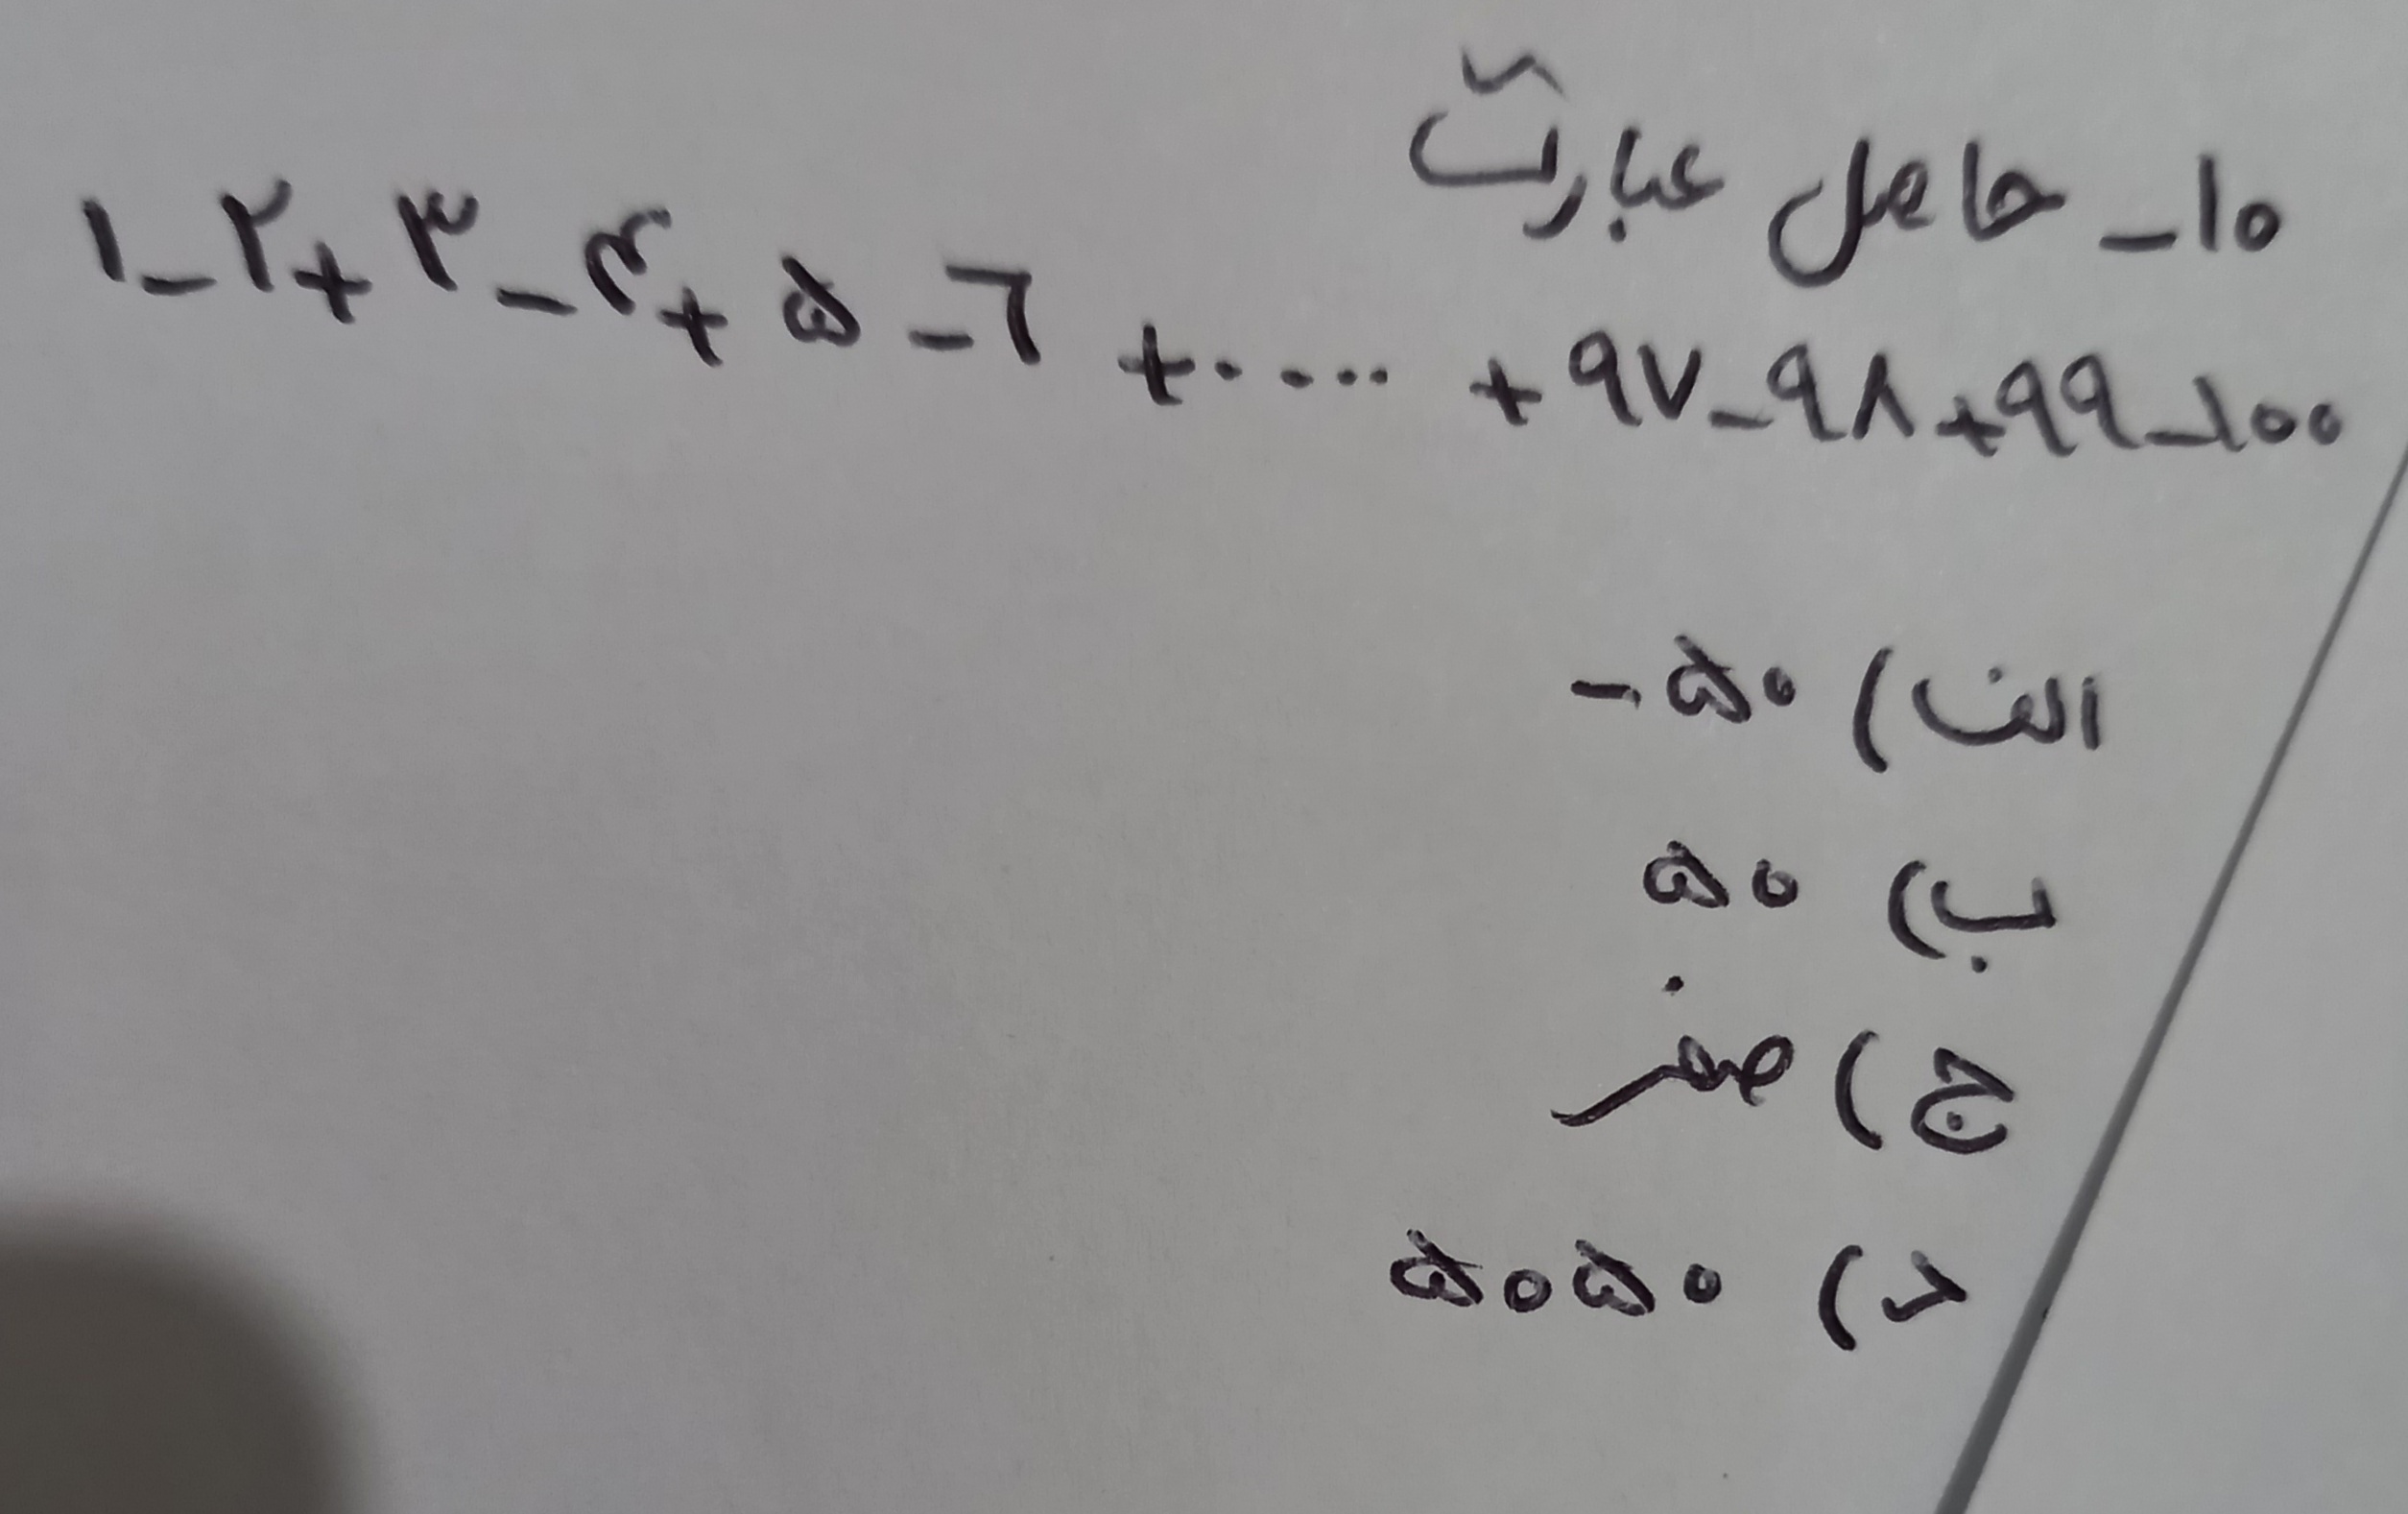 ۱۰- حاصل عبارت
۱-۲+۳-۴+۵-۶+.....+۹۷-۹۸+۹۹-۱۰۰
الف) ۵۰-
ب) ۵۰
ج) صفر
د) ۵۰۵۰